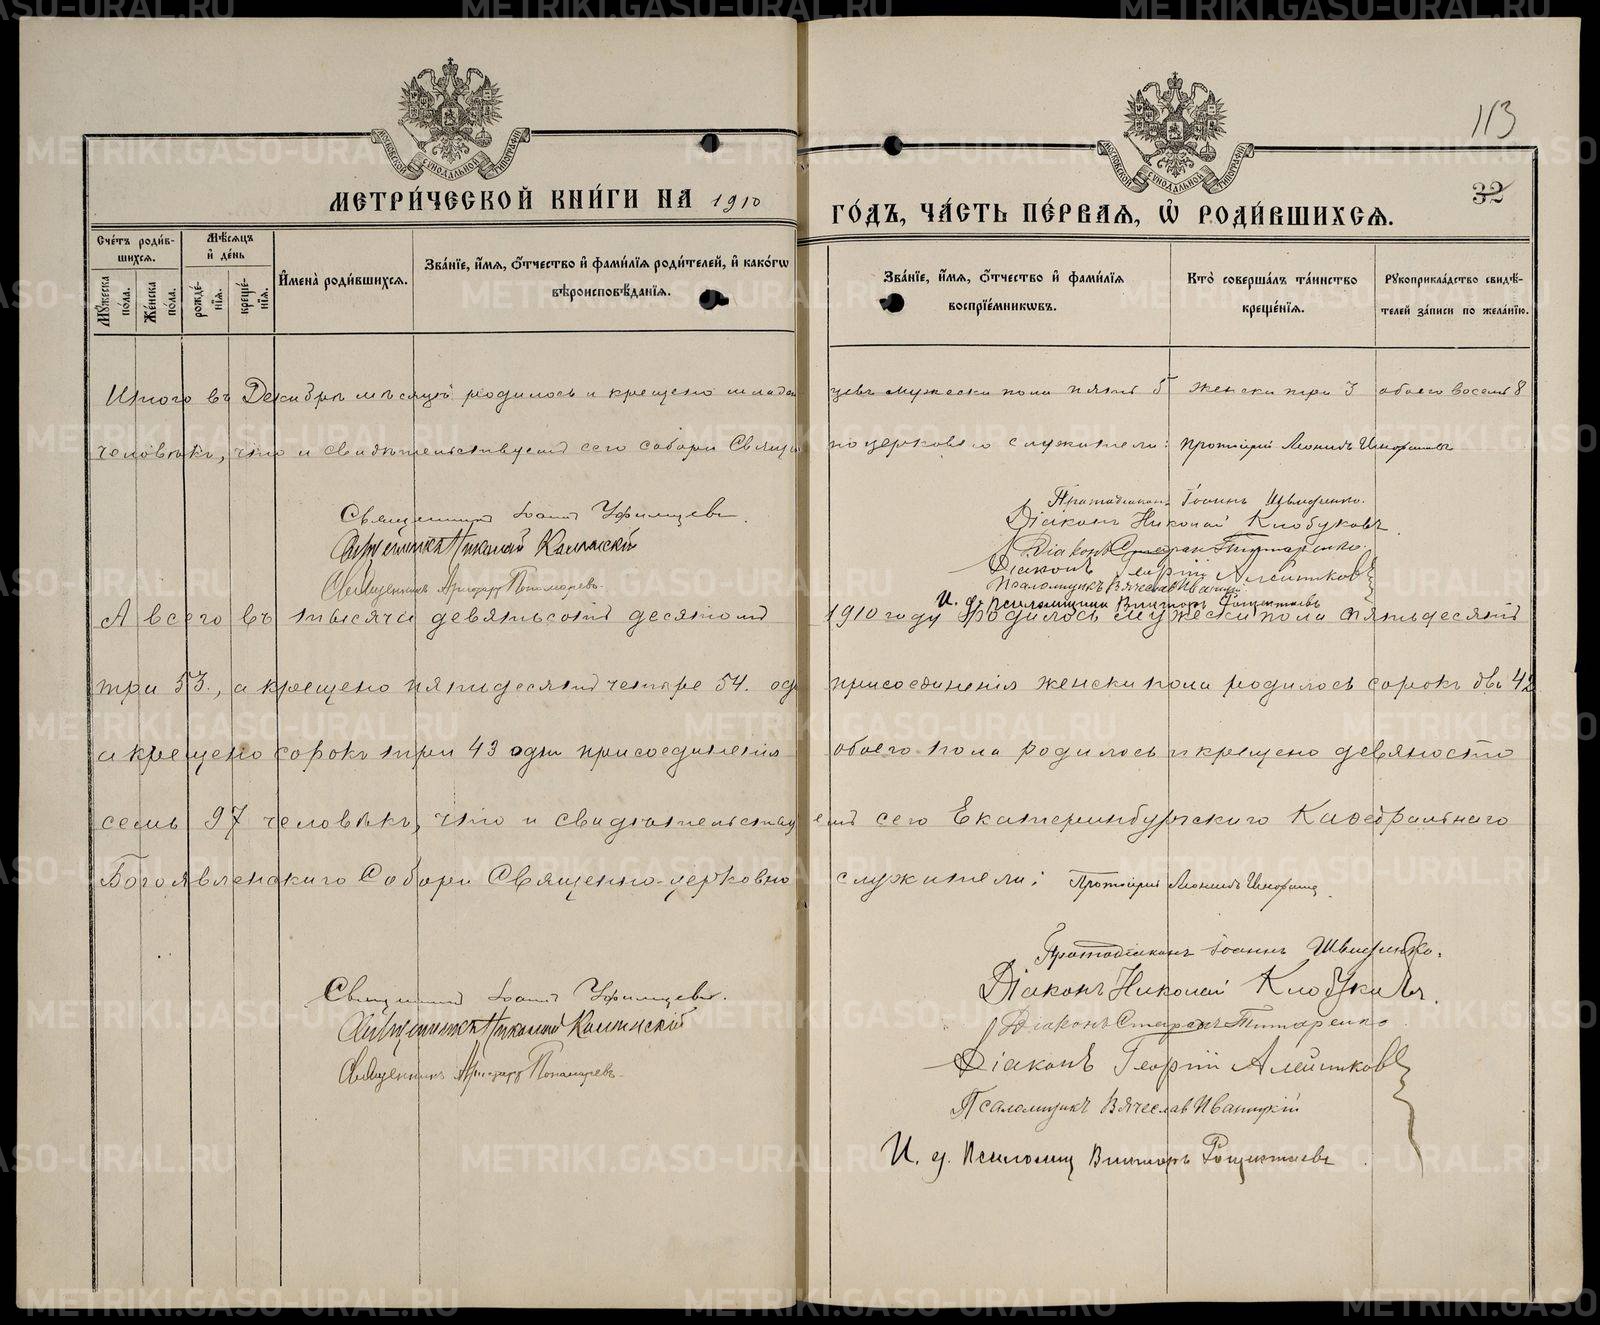 113
32
МОСКОВСКОЙ СѴНОДАЛЬНОЙ ТИПОГРАФІИ
МОСКОВСКОЙ СѴНОДАЛЬНОЙ ТИПОГРАФІИ
МЕТРИ́ЧЕСКОЙ КНИ́ГИ НА 1910 ГО́ДЪ, ЧА́СТЬ ПЕ́РВАѦ, Ѡ҆ РОДИ́ВШИХСѦ.
Сче́тъ роди́в-
шихсѧ.
Мꙋ́жеска
по́ла.
Же́нска
по́ла.
Мѣ́сѧцъ
и҆ де́нь
рожде́-
нїѧ.
креще́-
нїѧ.
И҆мена̀ роди́вшихсѧ.
Зва́нїе, и҆́мѧ, ѻ҆́тчество и҆ фами́лїѧ роди́телей, и҆ како́гѡ
вѣроисповѣ́данїѧ.
Зва́нїе, и҆́мѧ, ѻ҆́тчество и҆ фами́лїѧ
воспрїе́мникѡвъ.
Кто̀ соверша́лъ та́инство
креще́нїѧ.
Рꙋкоприкла́дство свидѣ́-
телей за́писи по жела́нїю.
Итого въ Декабрѣ мѣсяцѣ родилось и крещено младен цевъ мужеска пола пять 5 женска три 3 обоего восемь 8
человѣкъ, что и свидѣтельствуетъ сего собора Священ но церковно служители: Протоіерей Леонидъ
Священникъ Іоаннъ Уфимцевъ.
Священникъ Николай
Священникъ Аристархъ Пономаревъ.
Протодіаконъ Іоаннъ
Діаконъ Николай Клобуковъ
Діаконъ Стефанъ Титаренко.
Діаконъ Георгій Алейниковъ
Псаломщикъ Вячеславъ Иваницкій
И. д. Псаломщика Викторъ
А всего въ тысяча девятьсотъ десятомъ 1910 году родилось мужеска пола пятьдесятъ
три 53., а крещено пятьдесятъ четыре 54. одн присоединенія женска пола родилось сорокъ двѣ 42
а крещено сорокъ три 43 одн присоединенія обоего пола родилось и крещено девяносто
семь 97 человѣкъ, что и свидѣтельствуетъ сего Екатеринбургскаго Каѳедральнаго
Богоявленскаго Собора Священно-церковно служители: Протоіерей Леонидъ
Священникъ Іоаннъ Уфимцевъ.
Священникъ Николай
Священникъ Аристархъ Пономаревъ.
Протодіаконъ Іоаннъ
Діаконъ Николай Клобуковъ.
Діаконъ Стефанъ Титаренко
Діаконъ Георгій Алейниковъ
Псаломщикъ Вячеславъ Иваницкій
И. д. Псаломщ Викторъ
METRIKI.GASO-URAL.RU